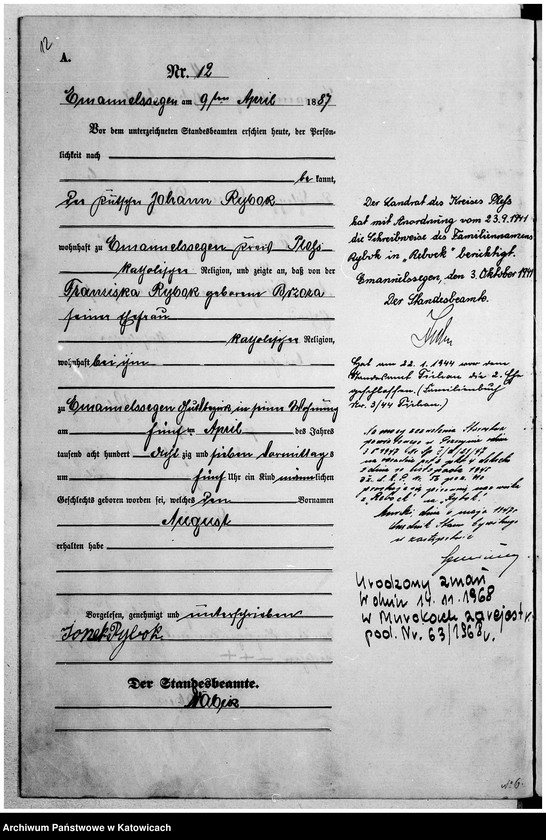 12
A.
Nr. 12
Emannelssegen am 9ten April 1887
Vor dem unterzeichneten Standesbeamten erschien heute, der Persön-
lichkeit nach
be kannt,
Johann Rybok
wohnhaft zu Emannelssegen Kreis Pless
katholischer Religion, und zeigte an, daß von der
Franziska Rybok geborenen Brzoza
seiner Ehefrau
katholischer Religion,
wohnhaft bei ihm
zu Emannelssegen in seiner Wohnung
am fünften April des Jahres
tausend acht hundert achtzig und sieben Vormittags
um fünf Uhr ein Kind männlichen
Geschlechts geboren worden sei, welches den Vornamen
August
erhalten habe
Vorgelesen, genehmigt und unterschrieben
Rybok
Der Standesbeamte.
Der Landrat des Kreises Pleß
hat mit Anordnung vom 23.9.1941
die Schreibweise des Familiennamens
Rybok in „Reback" berichtigt.
Emannelssegen, den 3. Oktober 1941
Der Standesbeamte.
Hat am 22.1.1944 vor dem
Standesamt Tichau die 2. Ehe
geschlossen. (Familienbuch
Nr. 3/44 Tichau)
Na mocy zezwolenia Starostwa
powiatowego w Pszczynie dnia
o dnia 10 listopada 1945
"Rybok"
dnia 6 maja 1947
Urzędnik Stanu Cywilnego
w zastępstwie
Urodzony zmarł
W dniu 14.11.1968
w Murckach zarejestr.
pod. Nr. 63/1968 r.
Archiwum Państwowe w Katowicach